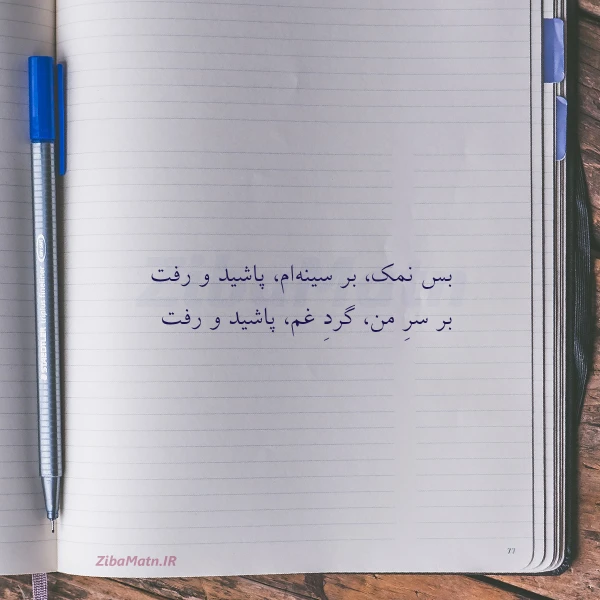 بس نمک، بر سینه‌ام، پاشید و رفت
بر سرِ من، گردِ غم، پاشید و رفت
ZibaMatn.IR